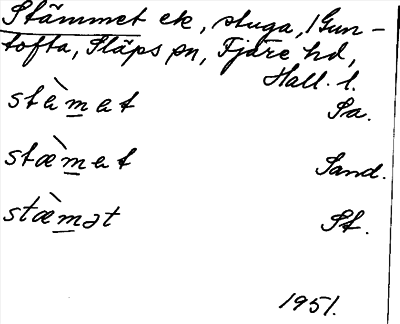 Stämmet ek, stuga, /Gun-
tofta, Släps sn, Fjäre hd,
Hall. l.
stæ̀m̲et Sa.
stæ̀m̲et Sand.
stæ̀m̲ət St.
1951.